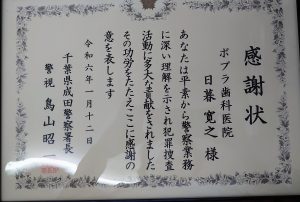 感謝状
ポプラ歯科医院
日暮寛之 様
あなたは平素から警察業務
に深い理解を示され犯罪捜査
活動に多大な貢献をされました
その功労をたたえここに感謝の
意を表します
令和六年一月十二日
千葉県成田警察署長
警視 鳥山昭一